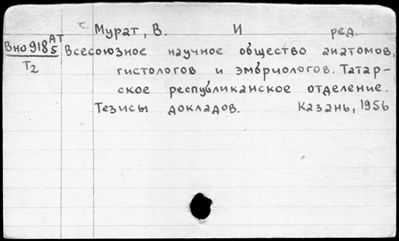 Мурат, В. И ред.
АТ
Вно 9185 Всесоюзное научное общество анатомов,
Т2 гистологов и эмбриологов. Татар-
ское республиканское отделение.
Тезисы докладов. Казань, 1956